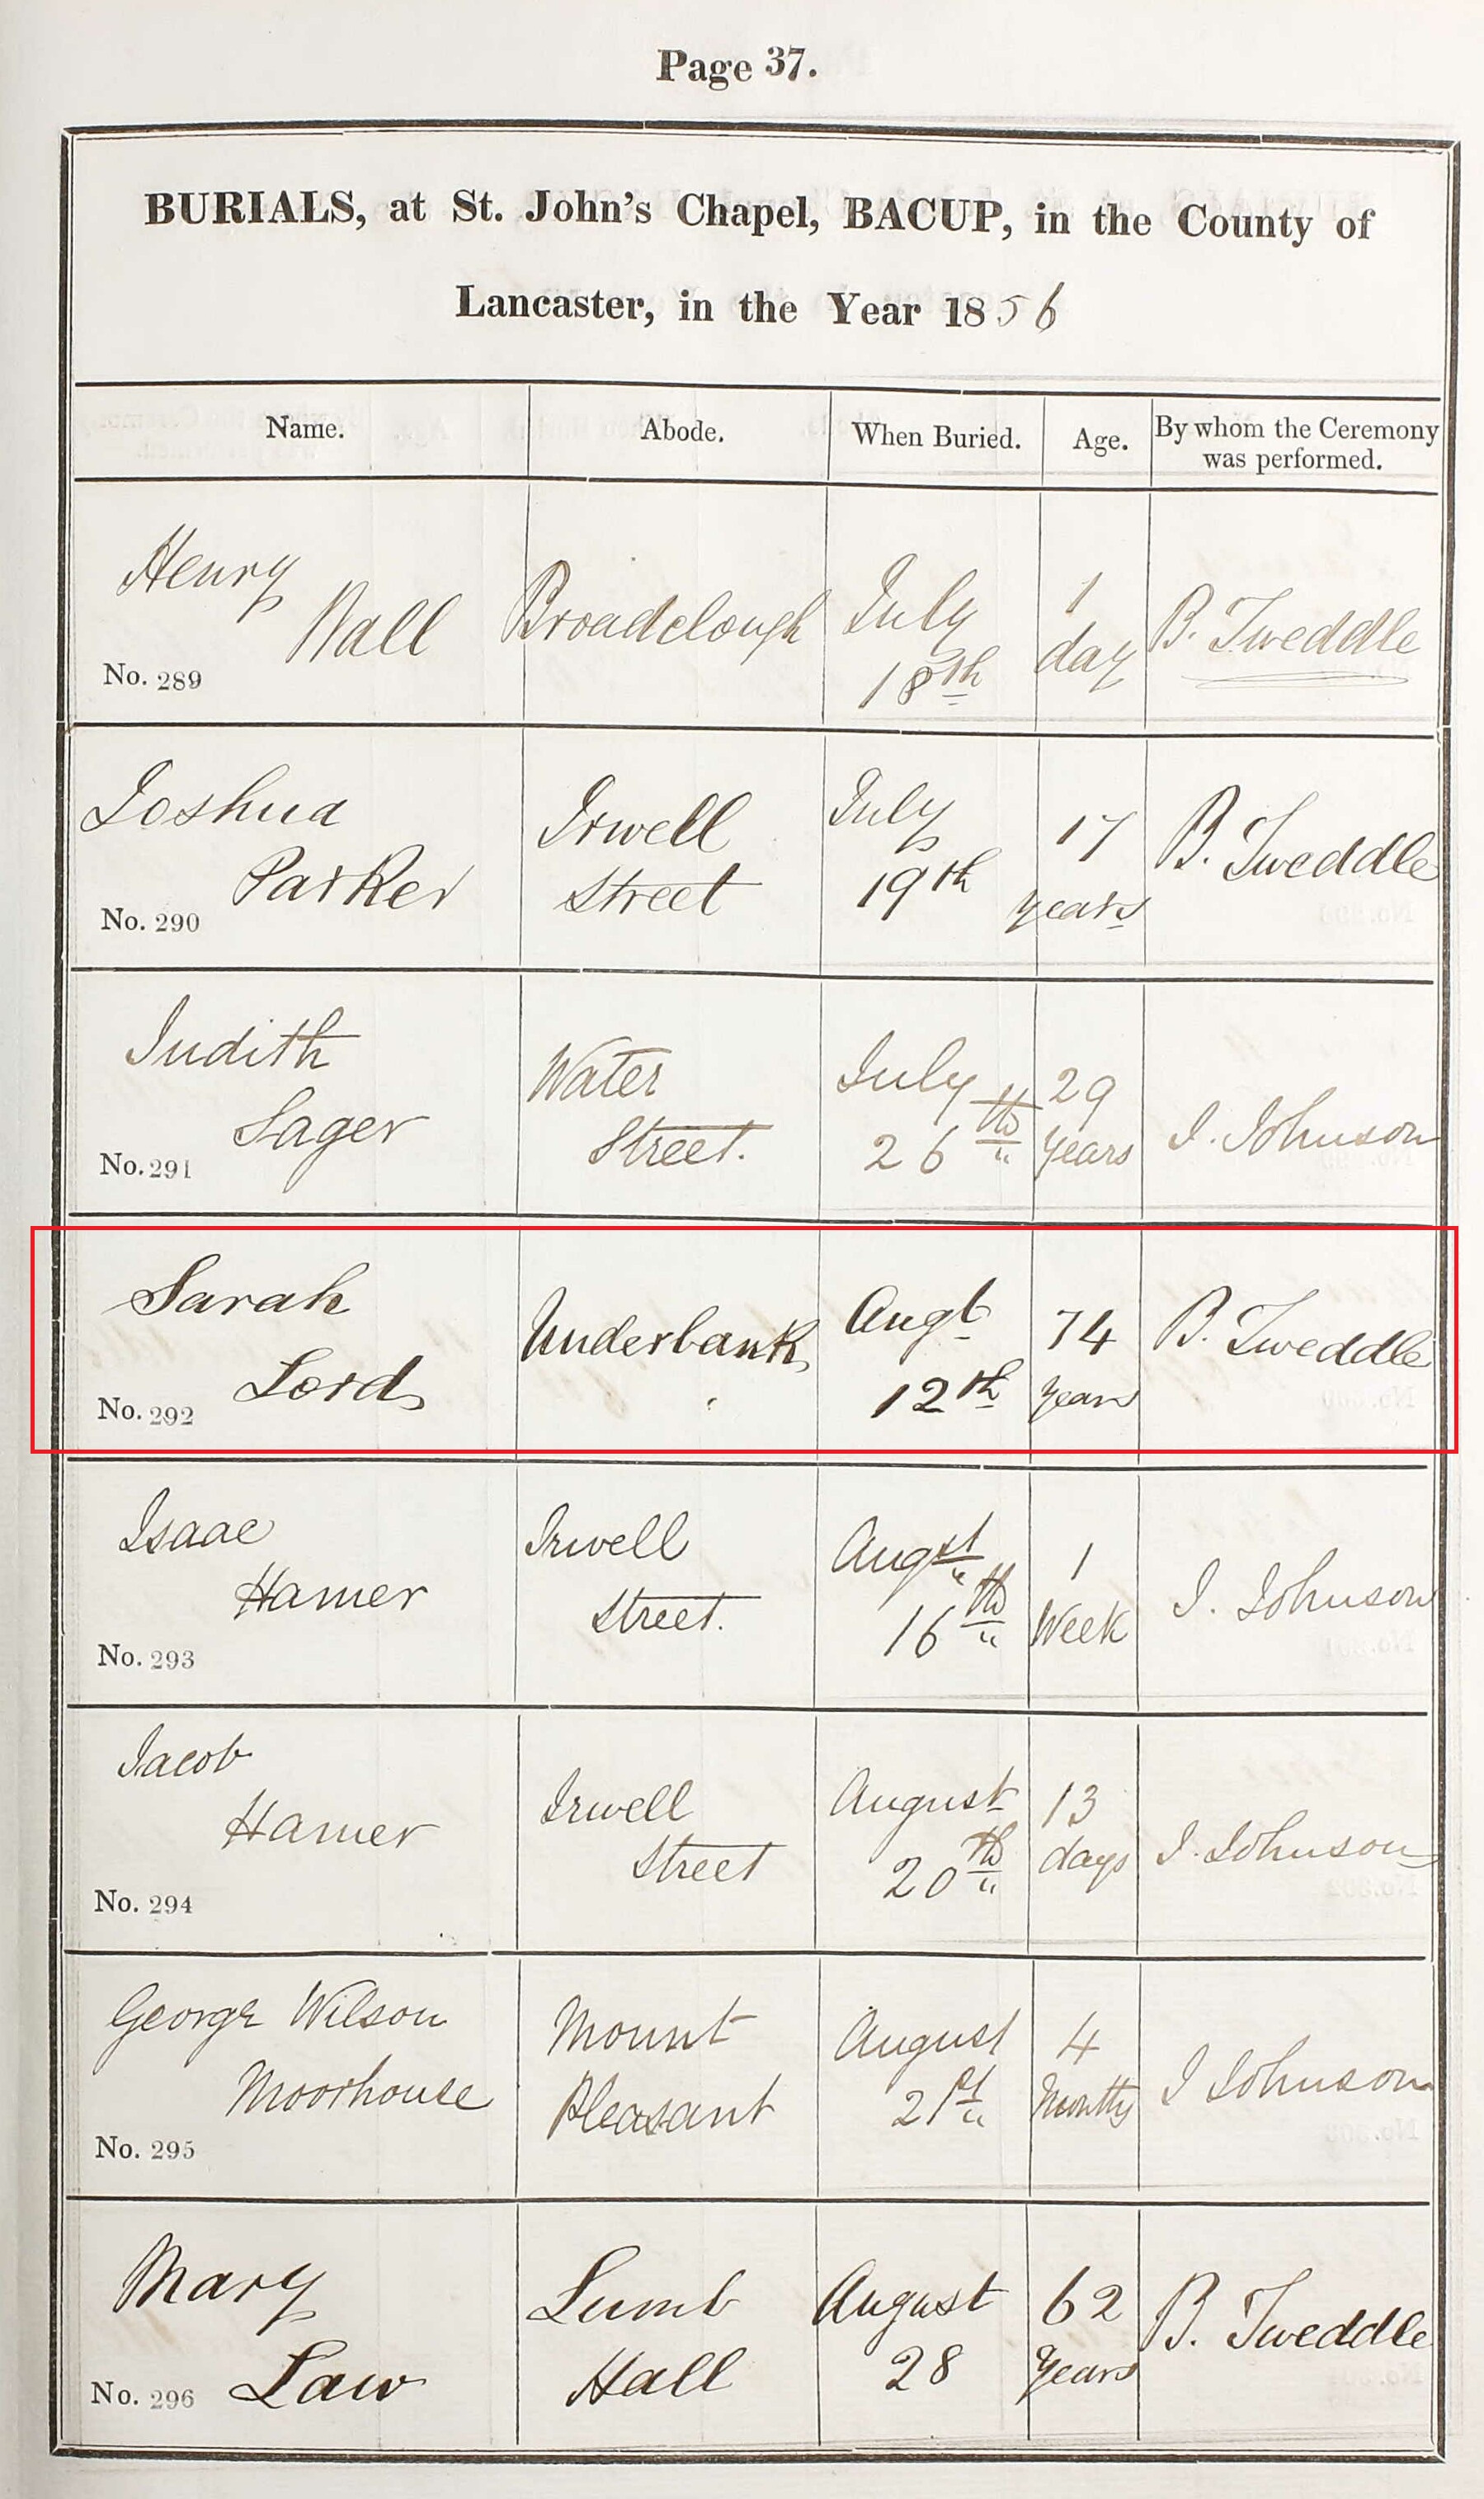 Page 37.
BURIALS, at St. John's Chapel, BACUP, in the County of
Lancaster, in the Year 1856
Name.
Abode.
When Buried.
Age.
By whom the Ceremony
was performed.
Henry
Nall
No. 289
Broadclough
July
18th
1
day
B. Tweddle
Joshua
Parker
No. 290
Irwell
Street
July
19th
17
years
B. Tweddle
Judith
Sager
No. 291
Water
Street.
July
26th
29
Years
J. Johnson
Sarah
Lord
No. 292
Underbank
Augt
12th
74
years
B. Tweddle
Isaac
Hamer
No. 293
Irwell
Street.
Augst
16th
1
Week
J. Johnson
Jacob
Hamer
No. 294
Irwell
Street
August
20th
13
days
J. Johnson
George Wilson
Moorhouse
No. 295
Mount
Pleasant
August
21st
4
Months
J Johnson
Mary
Law
No. 296
Lumb
Hall
August
28
62
Years
B. Tweddle